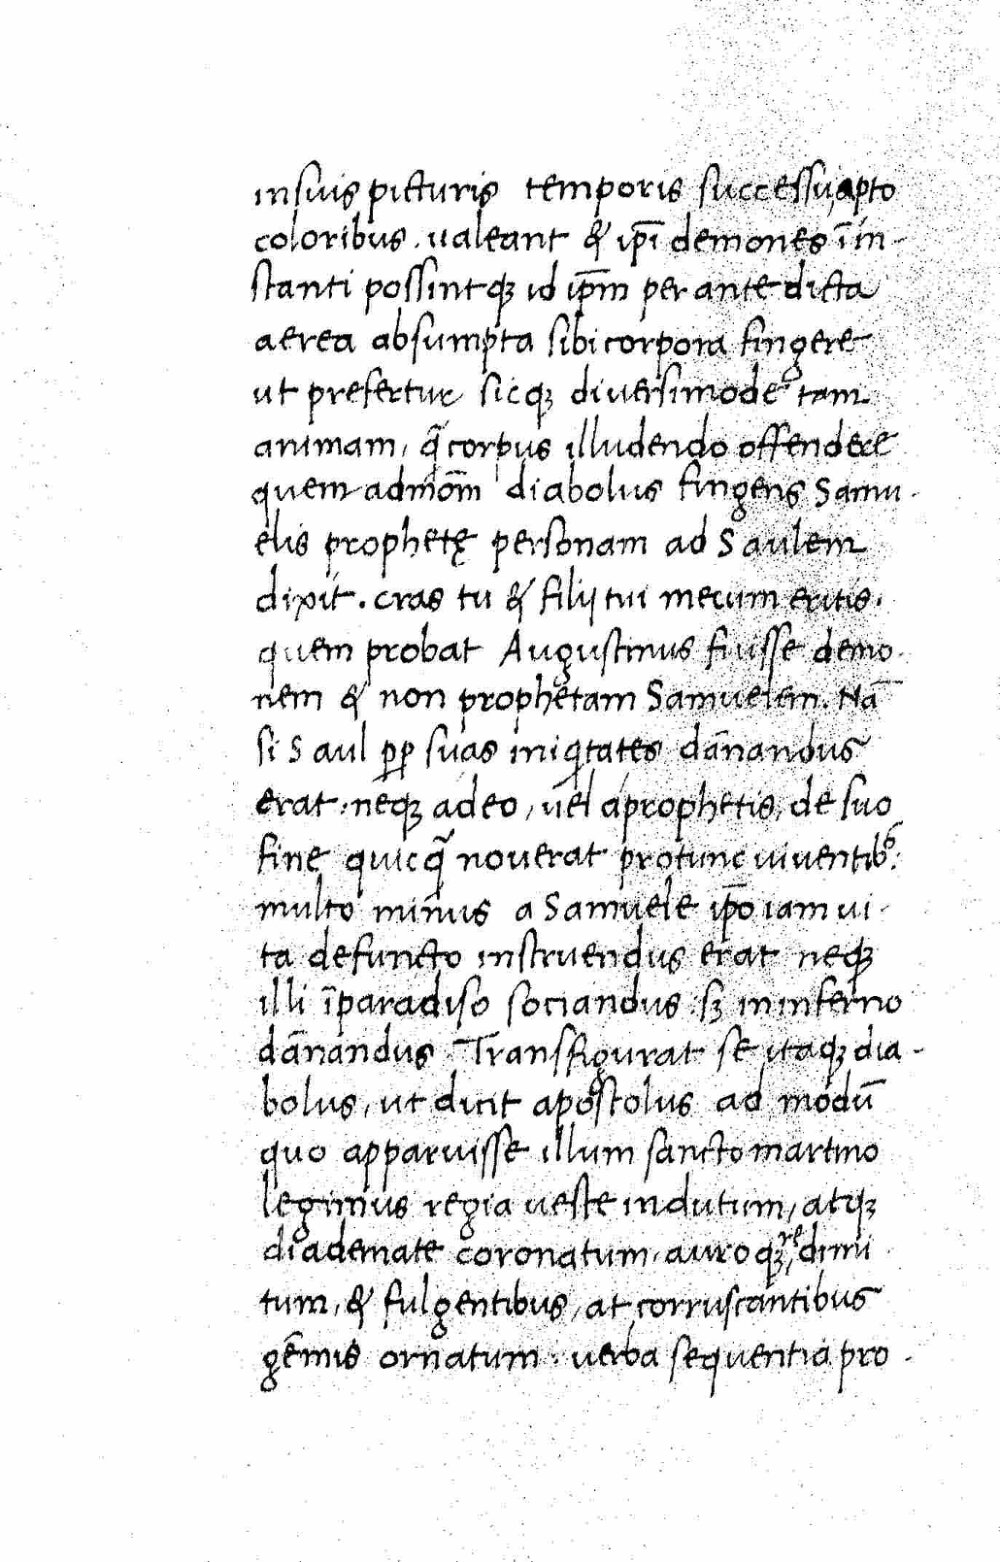 in suis picturis temporis successu, apto
coloribus. ualeant & ip̄i demones ī in-
stanti possintqꝫ id ip̄m per ante dicta
aerea absumpta sibi corpora fingere
ut prefertur sicqꝫ diuersimode tam
animam, q̄ corpus illudendo offendere
quem admōm diabolus fingens Samu-
elis prophetę personam ad Saulem
dixit. cras tu & filij tui mecum eritis.
quem probat Augustinus fuisse demo-
nem & non prophetam Samuelem. Nā
si Saul ꝓpꝑ suas iniqitates dānandus
erat. neqꝫ adeo, uel a prophetis, de suo
fine quicq̄ nouerat pro tunc uiuentibꝰ:
multo minus a Samuele ip̄o iam ui-
ta defuncto instruendus erat neqꝫ
illi ī paradiso sociandus. sꝫ in inferno
dānandus. Transfigurat se itaqꝫ dia-
bolus, ut dicit apostolus ad modū
quo apparuisse illum sancto martino
legimus regia ueste indutum, atqꝫ
diademate coronatum, auroqꝫ, redimi-
tum, & fulgentibus, at corruscantibus
gēmis ornatum. uerba sequentia pro-